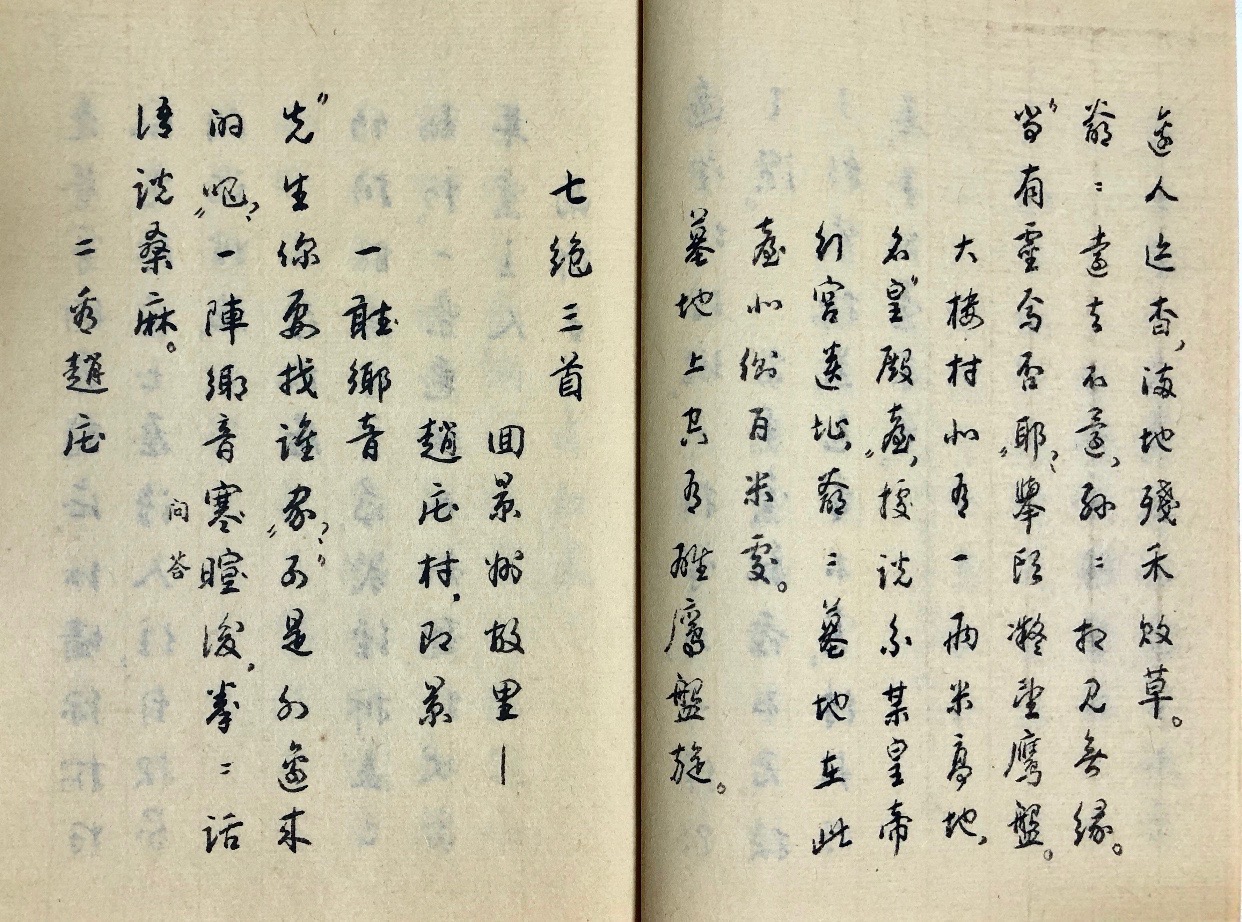 人迹杳，滿地殘禾敗草。
爺〻遠去不還，孫〻相見無緣。
“尚有靈焉否耶？”舉頭凝望鷹盤。
大樓村北有一兩米高地，
名“皇殿臺”，據説係某皇帝
行宮遺址。爺〻墓地在此
臺北側百米處。
墓地上空有雄鷹盤旋。
七絕三首
回景州故里—
趙庄村，即景
一聽鄉音
“先生你要找誰家？”“可是外邊来
的吧？”一陣鄉音寒暄後，拳〻話
問答
語説桑麻。
二看趙庄